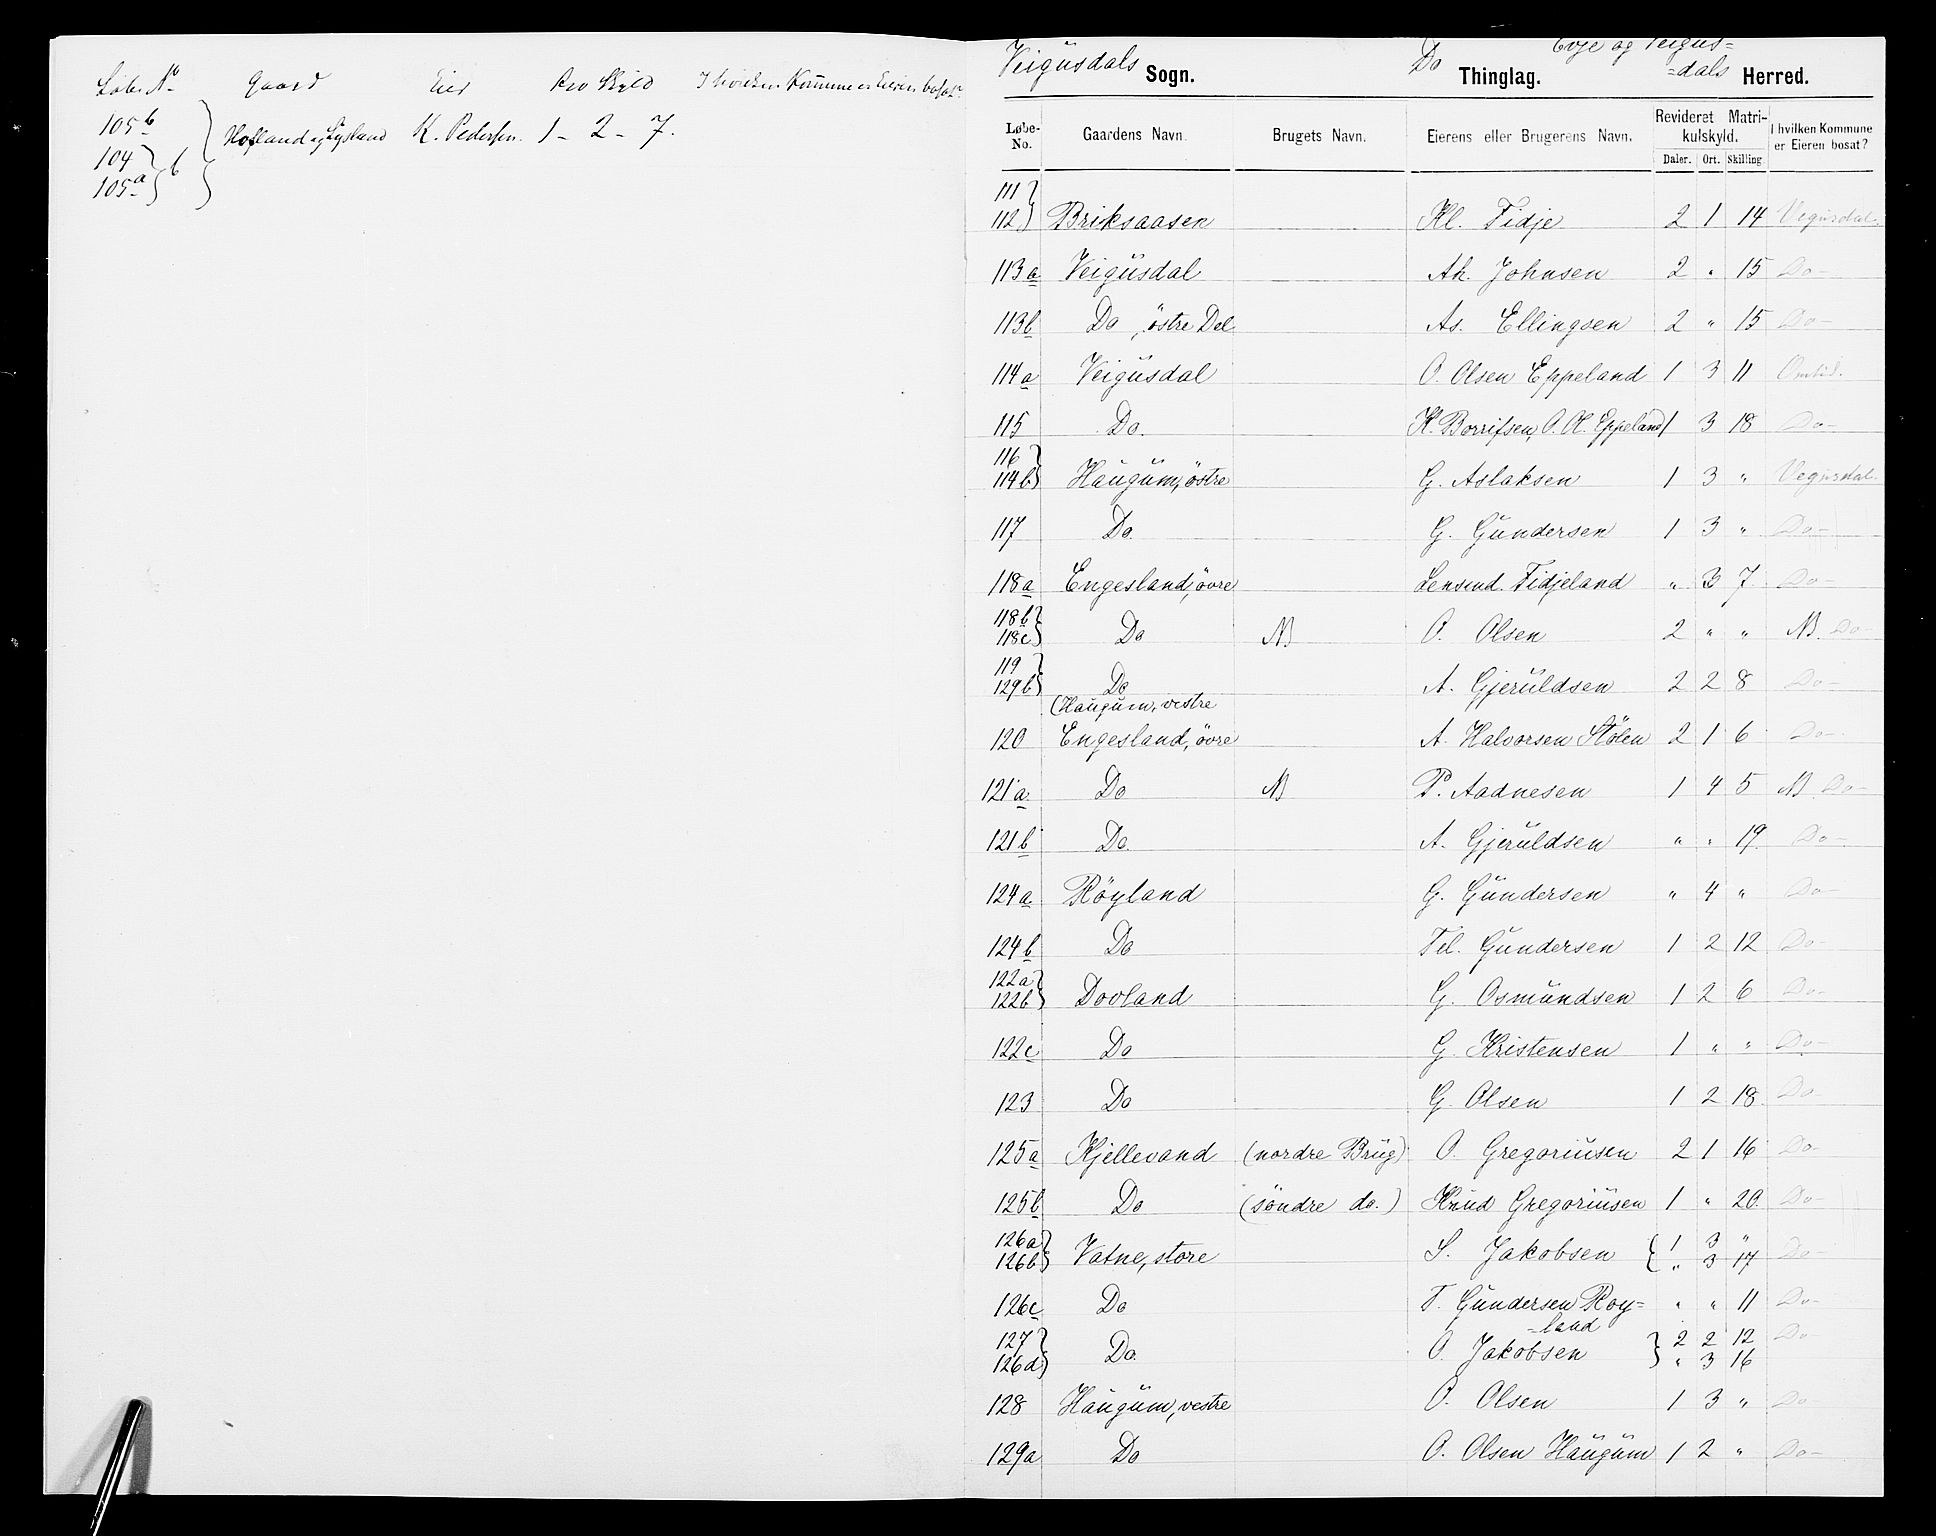 Løbe No Gaard Eier Rev Skyld I hvilken Kommune er Eieren bosat?
105b
104 } b Hofland og Lysland K. Pedersen. 1 - 2 - 7.
105a
Veigusdals Sogn. Do Thinglag. Evje og Veigus=
=dals Herred.
Løbe-No. Gaardens Navn. Brugets Navn. Eierens eller Brugerens Navn. Revideret Matrikulskyld. I hvilken Kommune er Eieren bosat?
Daler. Ort. Skilling
111
112 Briksaasen Kl. Fidje 2 1 14 Vegusdal.
113a Veigusdal Ah. Johnsen 2 " 15 Do
113b Do, östre Del As. Ellingsen 2 " 15 Do
114a Veigusdal O. Olsen Eppeland 1 3 11 Omlid.
115 Do. K. Borrifsen, O. K. Eppeland 1 3 18 Do
116
114b Haugum, östre G. Aslaksen 1 3 " Vegusdal.
117 Do. G. Gundersen 1 3 " Do
118a Engesland, övre Lensmd. Fidjeland " 3 7 Do
118b
118c Do NB O. Olsen 2 " " NB. Do
119
129b Do A. Gjeruldsen 2 2 8 Do
(Haugum, vestre
120 Engesland, övre A. Halvorsen Stölen 2 1 6 Do
121a Do NB P. Aadnesen 1 4 5 NB Do
121b Do. A. Gjeruldsen " " 19 Do
124a Röyland G. Gundersen " 4 " Do
124b Do Tel. Gundersen 1 2 12 Do
122a
122b Dovland G. Osmundsen 1 2 6 Do
122c Do G. Kristensen 1 " " Do
123 Do G. Olsen 1 2 18 Do
125a Kjellevand (nordre Brug) O. Gregoriusen 2 1 16 Do
125b Do (söndre do.) Knud Gregoriusen 1 " 20 Do
126a 1 3 "
126b Vatne, store S. Jakobsen " 3 17 Do
126c Do T. Gundersen Roy= " " 11 Do
=land
127 2 2 12 Do
126d Do. O. Jakobsen " 3 16
128 Haugum, vestre O. Olsen 1 3 " Do
129a Do O. Olsen Haugum 1 2 " Do